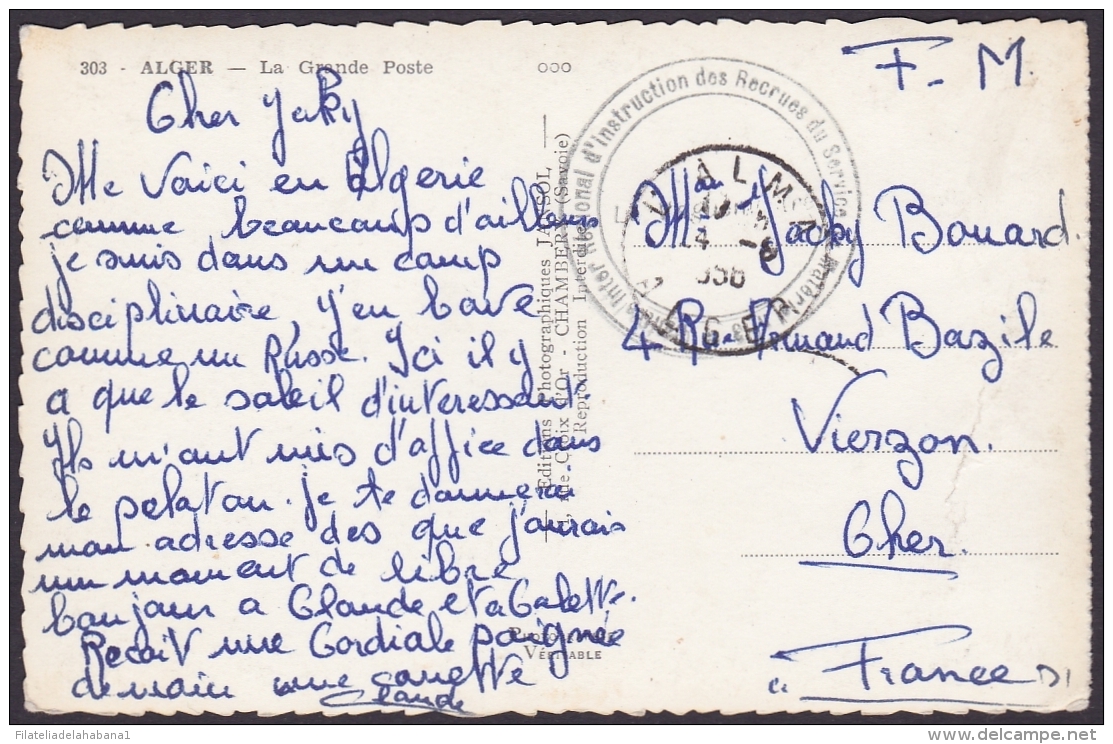 303 - ALGER — La Grande Poste
Cher Jaky
Me voici en Algerie
comme beaucoup d'ailleurs
je suis dans un camp
disciplinaire, j'en bave
comme un Russe. Ici il y
a que le soleil d'interessant.
Ils m'ont mis d'office dans
le peloton. je te donnerai
mon adresse des que j'aurais
un moment de libre
bonjour a Claude et a Colette.
Recoit une Cordiale poignée
de main
Claude
Editions Photographiques JANSOL
rue Croix d'Or - CHAMBERY (Savoie)
Reproduction Interdite
VÉRITABLE
F. M.
d'Instruction des Recrues du Service
ALGER
Jacky Bouard.
4 Bazile
Vierzon.
Cher.
France
Filateliadelahabana1
delcampe.net